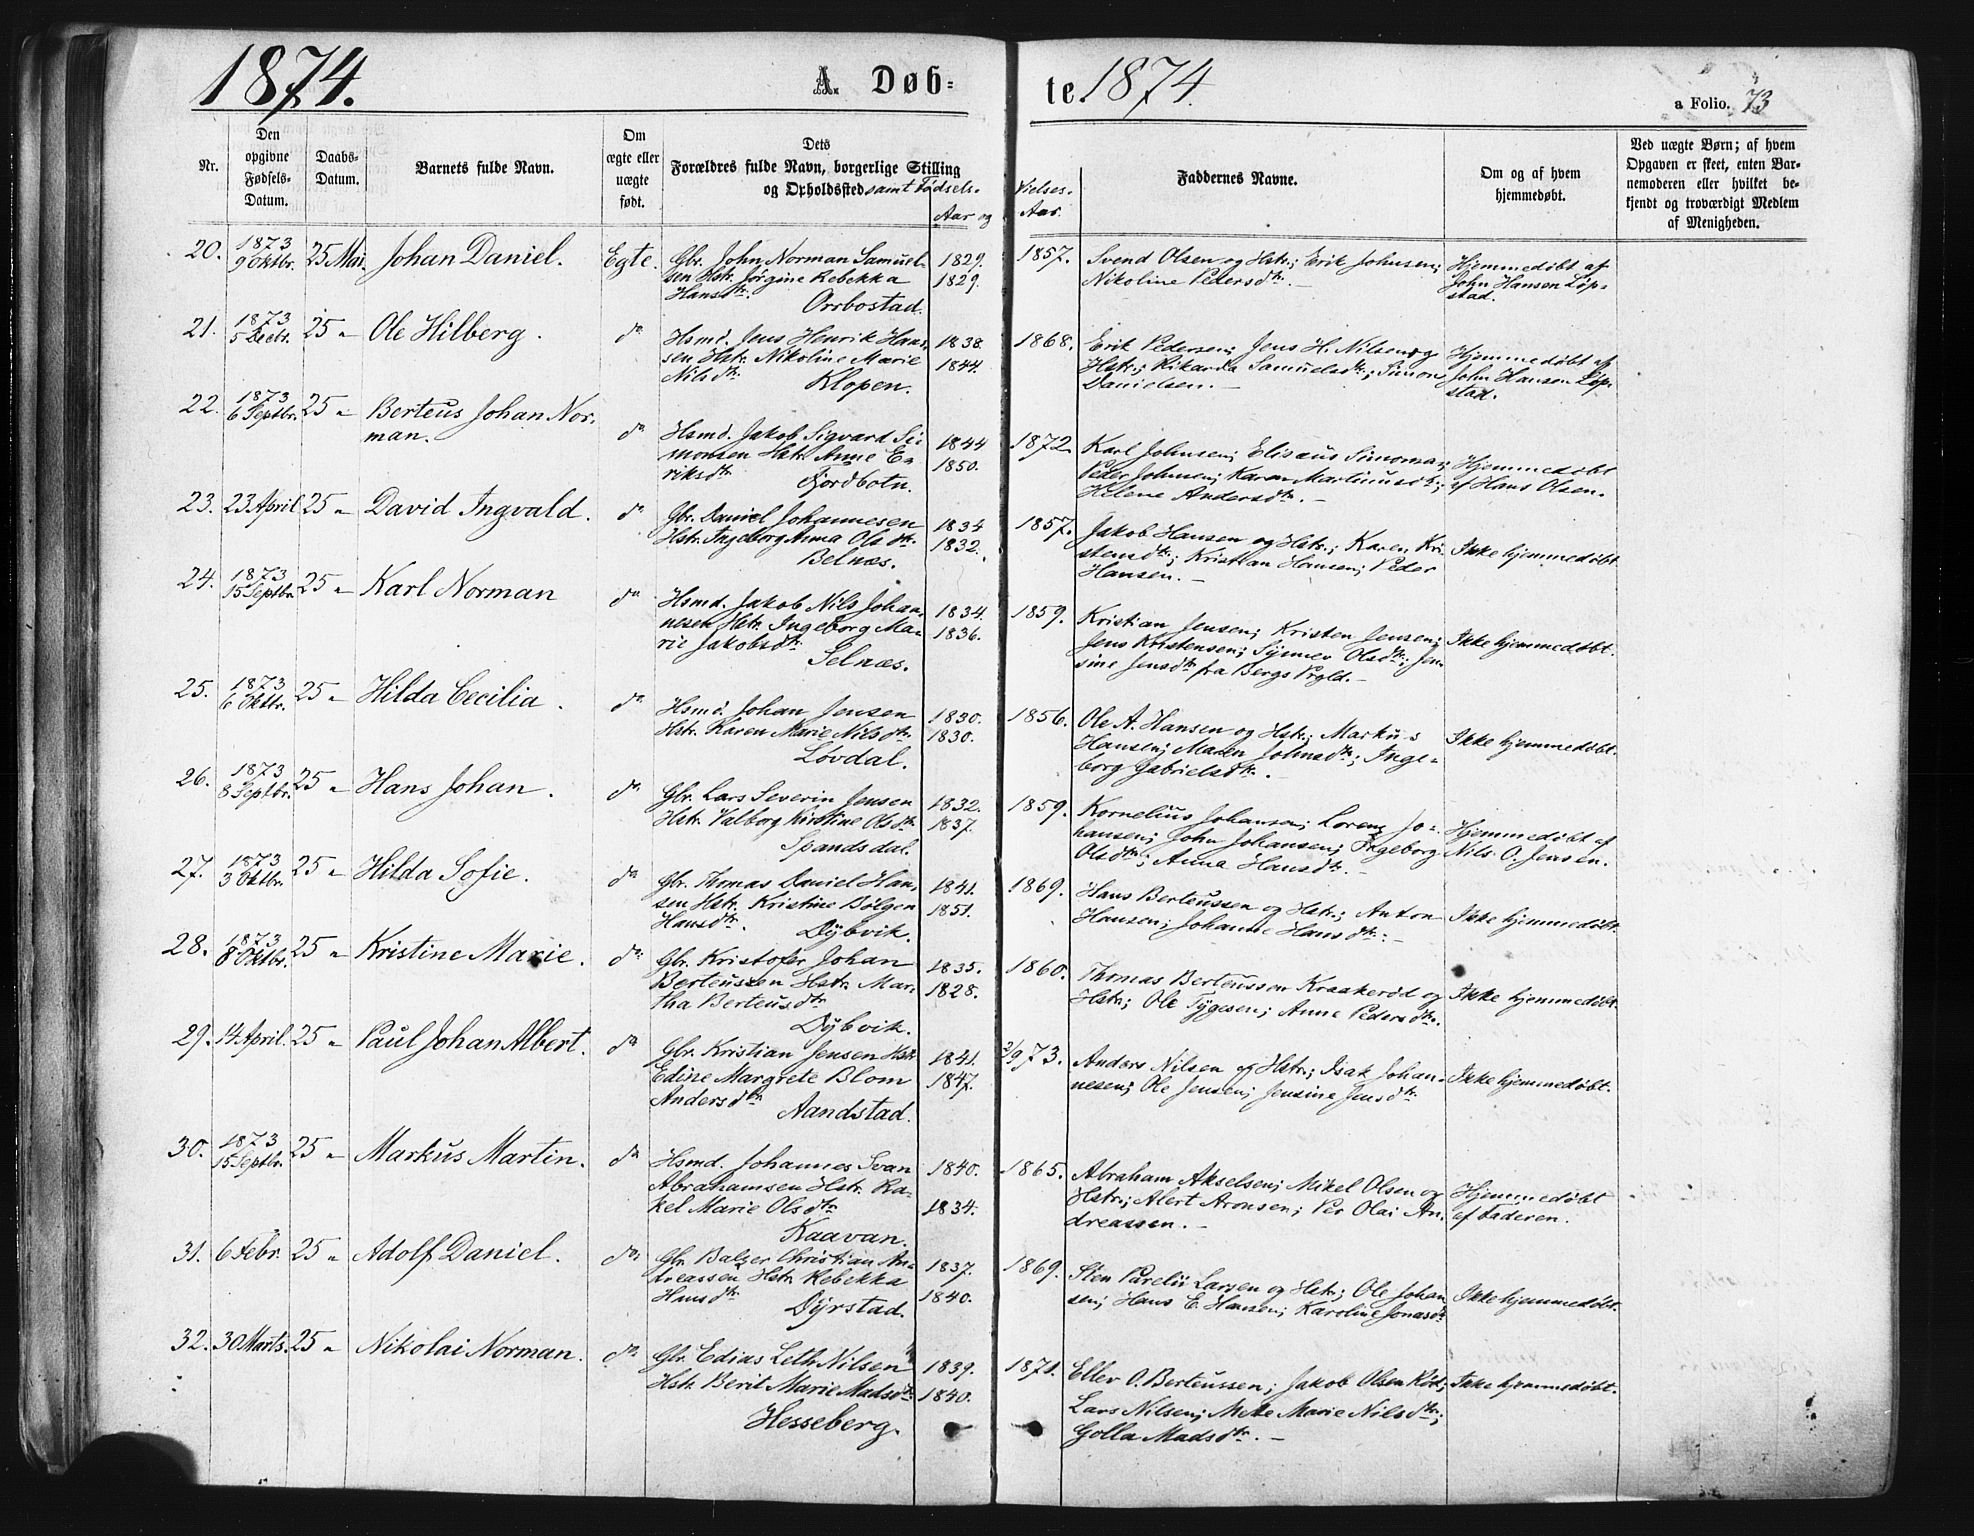 1874. A. Døb= te. 1874 a Folio. 73
Nr.
Den opgivne Fødsels-Datum.
Daabs-Datum.
Barnets fulde Navn.
Om ægte eller uægte født.
Dets Forældres fulde Navn, borgerlige Stilling og Opholdssted samt Fødsels-
Aar og
Vielses-Aar.
Faddernes Navne.
Om og af hvem hjemmedøbt.
Ved uægte Børn; af hvem Opgaven er skeet, enten Barnemoderen eller hvilket bekjendt og troværdigt Medlem af Menigheden.
20. 1873 9 Oktbr. 25 Mai. Johan Daniel. Egte. Gbr. John Norman Samuel- 1829. 1857. Svend Olsen og Hstr.; Erik Johnsen; Hjemmedøbt af
sen Hstr. Jørgine Rebekka 1829. Nikoline Pedersdtr. – John Hansen Løp-
Hansdtr. Orrbostad. stad.
21. 1873 5 Decbr. 25 " Ole Hilberg. do Hsmd. Jens Henrik Han- 1838. 1868. Erik Pedersen; Jens H. Nilsen og Hjemmedøbt af
sen Hstr. Nikoline Marie 1844. Hstr.; Rikarda Samuelsdtr.; Simon John Hansen Løp-
Nilsdtr. Klopen. Danielsen. – stad.
22. 1873 6 Septbr. 25 " Berteus Johan Nor-
man. do Hsmd. Jakob Sigvard Si- 1844 1872. Karl Johnsen; Elisæus Simonsen; Hjemmedøbt
monsen Hstr. Anne E- 1850. Peder Johnsen; Karen Martinusdtr.; af Hans Olsen.
riksdtr. Fjordbotn. Helene Andersdtr. –
23. 23 April 25 " David Ingvald. do Gbr. Daniel Johannesen 1834 1857. Jakob Hansen og Hstr.; Karen Kri-
Hstr. Ingeborg Anna Olsdtr. 1832. stensdtr.; Kristian Hansen; Peder Ikke hjemmedøbt.
Belnæs. Hansen. –
24. 1873 15 Septbr. 25 " Karl Norman do Hsmd. Jakob Nils Johan- 1834. 1859. Kristian Jensen; Kristen Jensen;
nesen Hstr. Ingeborg Ma- 1836. Jens Kristensen; Synnev Olsdtr.; Jen- Ikke hjemmedøbt.
rie Jakobsdtr. Selnæs. sine Jensdtr. fra Bergs Prgld. –
25. 1873 6 Oktbr. 25 " Hilda Cecilia. do Hsmd. Johan Jensen 1830. 1856. Ole A. Hansen og Hstr.; Markus
Hstr. Karen Marie Nilsdtr. 1830. Hansen; Maren Johnsdtr.; Inge- Ikke hjemmedøbt.
Løvdal. borg Gabrielsdtr. –
26. 1873 8 Septbr. 25 " Hans Johan. do Gbr. Lars Severin Jensen 1832. 1859. Kornelius Johansen; Lorenz Jo- Hjemmedøbt af
Hstr. Valborg Kirstine Olsdtr. 1837. hansen; John Johansen; Ingeborg Nils O. Jensen.
Spandsdal. Olsdtr.; Anna Hansdtr. –
27. 1873 3 Oktbr. 25 " Hilda Sofie. do Gbr. Thomas Daniel Han- 1841. 1869. Hans Berteussen og Hstr.; Anton Ikke hjemmedøbt.
sen Hstr. Kristine Bølgen 1851. Hansen; Johanne Hansdtr. –
Hansdtr. Dybvik.
28. 1873 8 Oktbr. 25 " Kristine Marie. do Gbr. Kristofer Johan 1835. 1860. Thomas Berteussen Kraakerød og Ikke hjemmedøbt.
Berteussen Hstr. Mar- 1828. Hstr.; Ole Tygesen; Anne Pedersdtr.
tha Berteusdtr.
Dybvik.
29. 14 April. 25 " Paul Johan Albert. do Gbr. Kristian Jensen Hstr. 1841. 2/9 73. Anders Nilsen og Hstr.; Isak Johan-
Edine Margrete Blom 1847. nesen; Ole Jensen; Jensine Jensdtr. Ikke hjemmedøbt.
Andersdtr. Aandstad.
30. 1873 15 Septbr. 25 " Markus Martin. do Hsmd. Johannes Svan 1840. 1865. Abraham Akselsen; Mikel Olsen og Hjemmedøbt
Abrahamsen Hstr. Ra- Hstr.; Alert Aronsen; Per Olai An- af Faderen.
kel Marie Olsdtr. 1834. dreassen. –
Kaavan.
31. 6 Febr. 25 " Adolf Daniel. do Gbr. Balzer Christian An- 1837. 1869. Sten Parelii Larsen og Hstr.; Ole Johan
dreassen Hstr. Rebekka 1840. sen; Hans E. Hansen; Karoline Jonasdtr. Ikke hjemmedøbt.
Hansdtr. Dyrstad.
32. 30 Marts. 25 " Nikolai Norman. do Gbr. Edias Leth Nilsen 1839. 1871. Ellev O. Berteussen; Jakob Olsen Rød; Ikke hjemmedøbt.
Hstr. Berit Marie Madsdtr. 1840. Lars Nilsen; Mette Marie Nilsdtr.;
Hesseberg. Golla Madsdtr. –